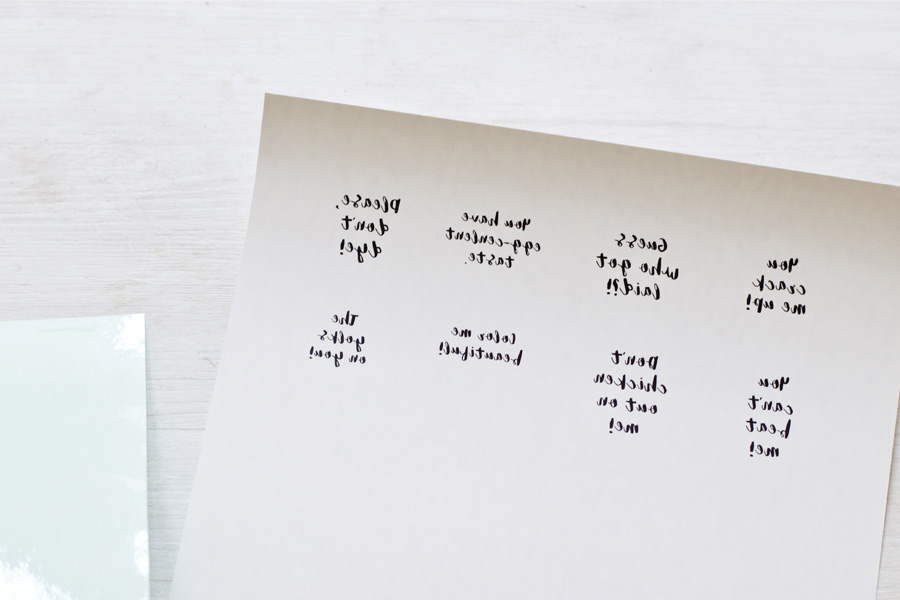 Please,
don't
dye!
You have
egg-cenlent
taste.
Guess
who got
laid?!
You
crack
me up!
The
yolks
on you!
Color me
beautiful!
Don't
chicken
out on
me!
You
can't
beat
me!